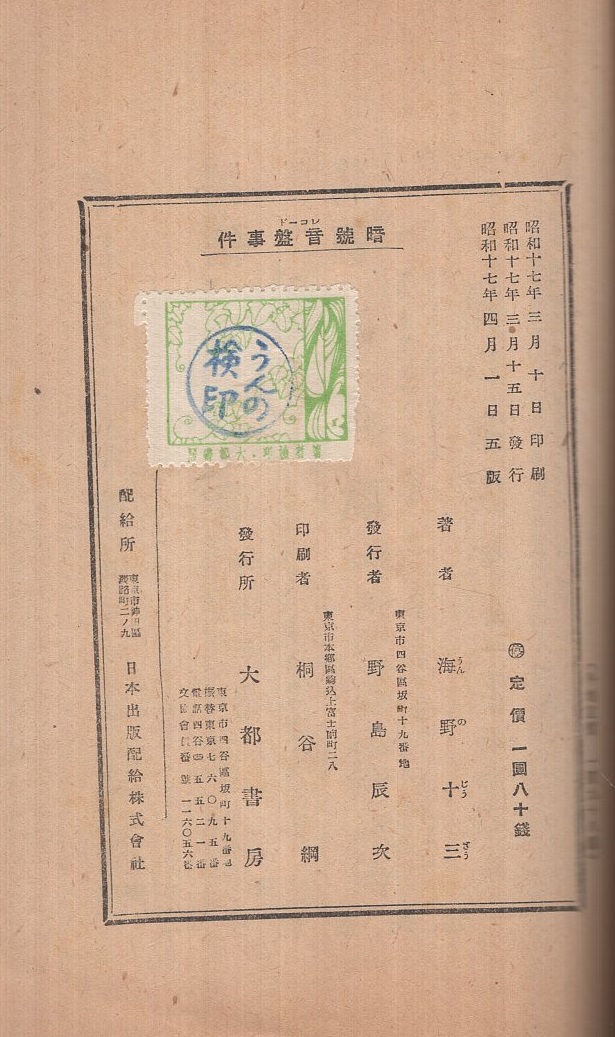 昭和十七年三月十日印刷
昭和十七年三月十五日發行
昭和十七年四月一日五版
㊞定價一圓八十錢
暗號音盤事件
レコード
うんの
検印
著者 海野十三
うんのじうざう
東京市四谷區坂町十九番地
發行者 野島辰次
東京市本鄕區駒込上富士前町二八
印刷者 桐谷綱
發行所 大都書房
東京市四谷區坂町十九番地
振替東京七六〇九五番
電話四谷四五二一番
號一一六〇五六番
配給所
東京市神田區
淡路町二ノ九
日本出版配給株式會社